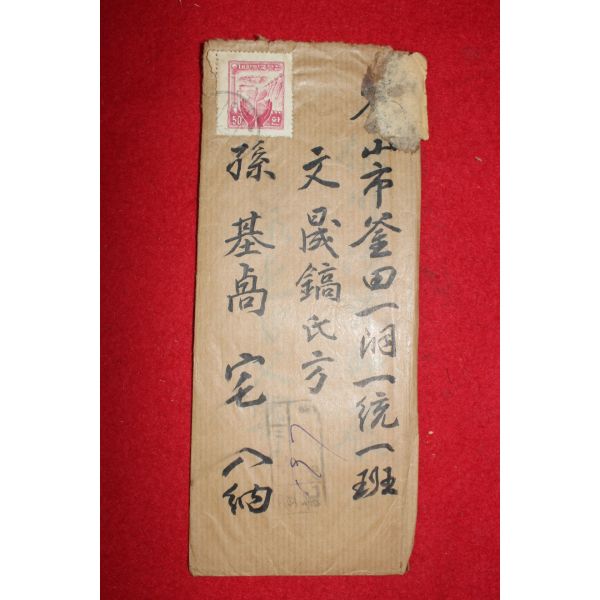 山市釜田一洞一統一班
文晟鎬氏方
孫基高 宅 入納
50 환